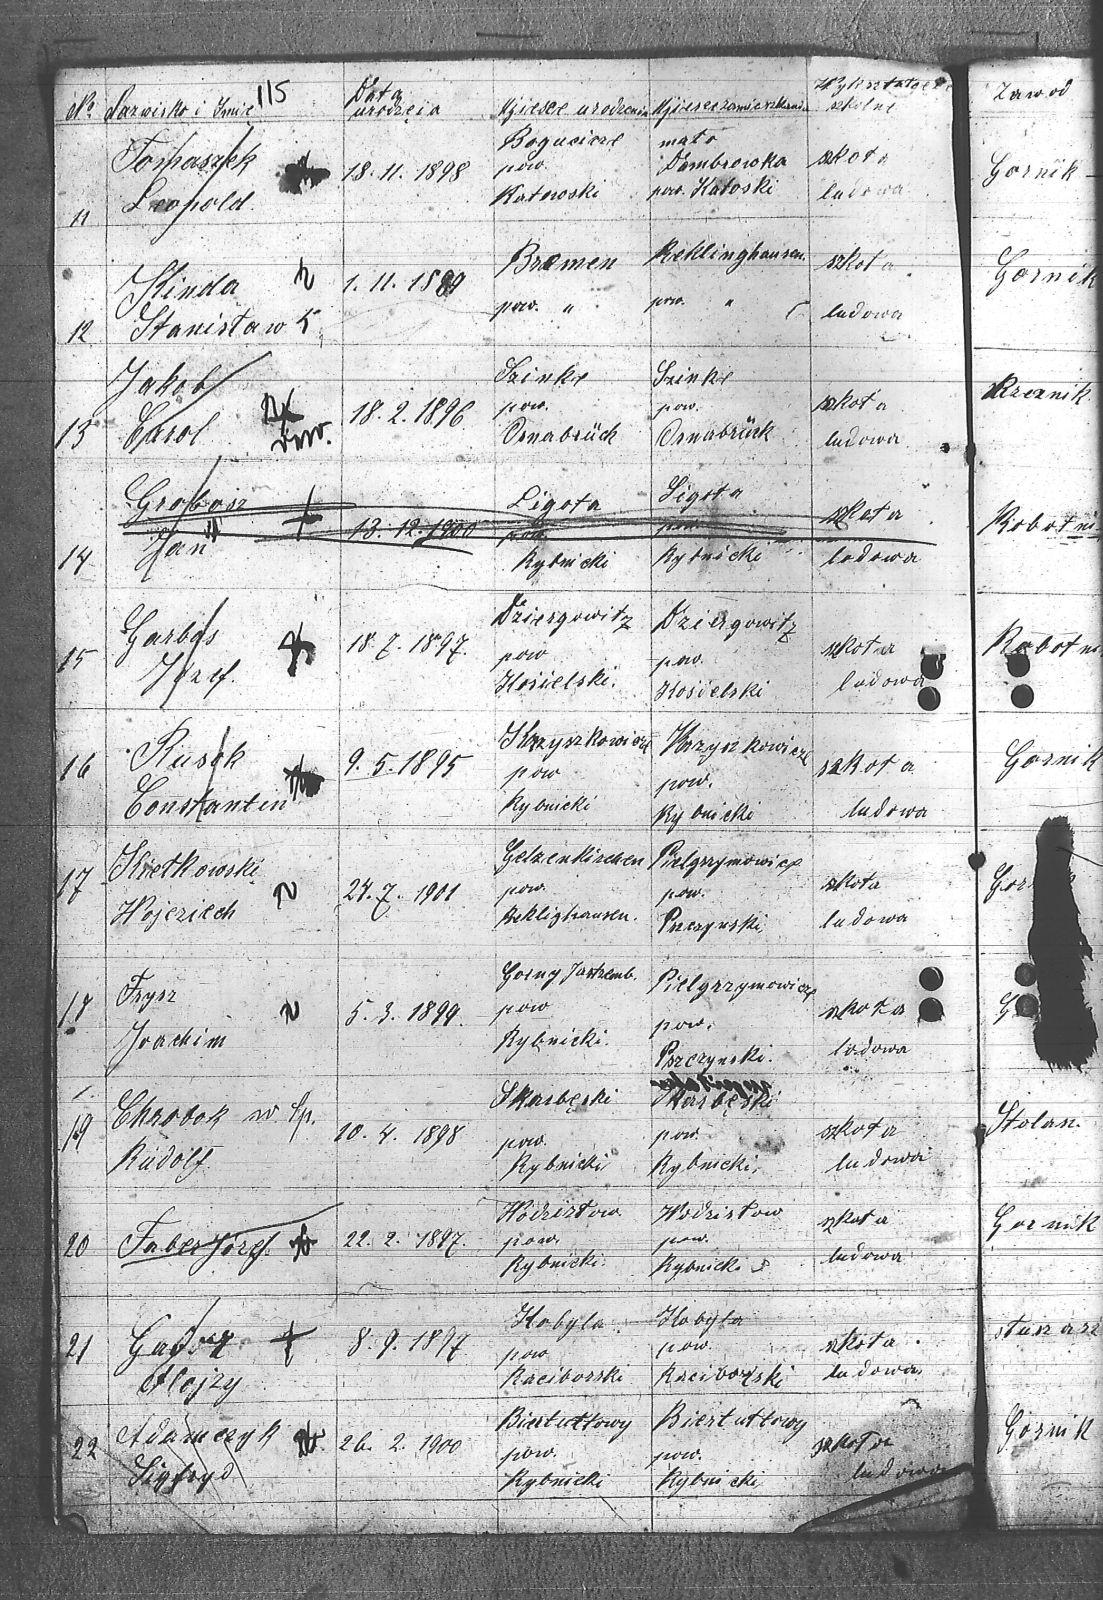 115
No Nazwisko i Imię Data urodzęia Miejsce urodzenia Miejsce zamieszkania Wykształcenie szkolne Zawod
11 Tomaszek Leopold 18. 11. 1898 Bogucice pow. Katowski mała Dambrowka pow. Katoski szkoła ludowa Gornik
12 Kinda Stanisław 1. 11. 1889 Bremen pow. " Reklinghausen. pow. " szkoła ludowa Gornik
13 Jakob Carol 18. 2. 1896 Szinke pow. Osnabrück Szinke pow. Osnabrück szkoła ludowa Rzeznik
14 Grobosz Jan 13. 12. 1900 Ligota pow. Rybnicki Ligota pow. Rybnicki szkoła ludowa Robotni
15 Garbas Józef. 18. 7. 1897. Dziergowitz pow Kosielski. Dziergowitz pow. Kosielski szkoła ludowa Robotni
16 Rusek Constantin 9. 5. 1895 Krzyszkowice pow Rybnicki Krzyszkowice pow. Rybnicki szkoła ludowa Gornik
17 Kietkowski Wojciech 24. 7. 1901 Gelzenkirchen pow. Reklighausen. Pielgrzymowice pow. Pszczynski szkoła ludowa
18 Frysz Joachim 5. 3. 1899. Gorny Jastrzemb. pow Rybnicki. Pielgrzymowice pow. Pszczynski. szkoła ludowa
19 Chrobok w Sp. Rudolf 10. 4. 1898 Skarbęski pow. Rybnicki Skarbęski pow. Rybnicki szkoła ludowa Stolar.
20 Faber Józef. 22. 2. 1897. Wodzisłow pow. Rybnicki. Wodzisłow pow. Rybnicki szkoła ludowa Gornik
21 Alojzy 8. 9. 1897 Kobyla pow Raciborski Kobyla pow. Raciborski szkoła ludowa slusarz
22 Adamczyk Sigfryd 26. 2. 1900 Biertułtowy pow. Rybnicki Biertułtowy pow. Rybnicki szkoła ludowa Gornik